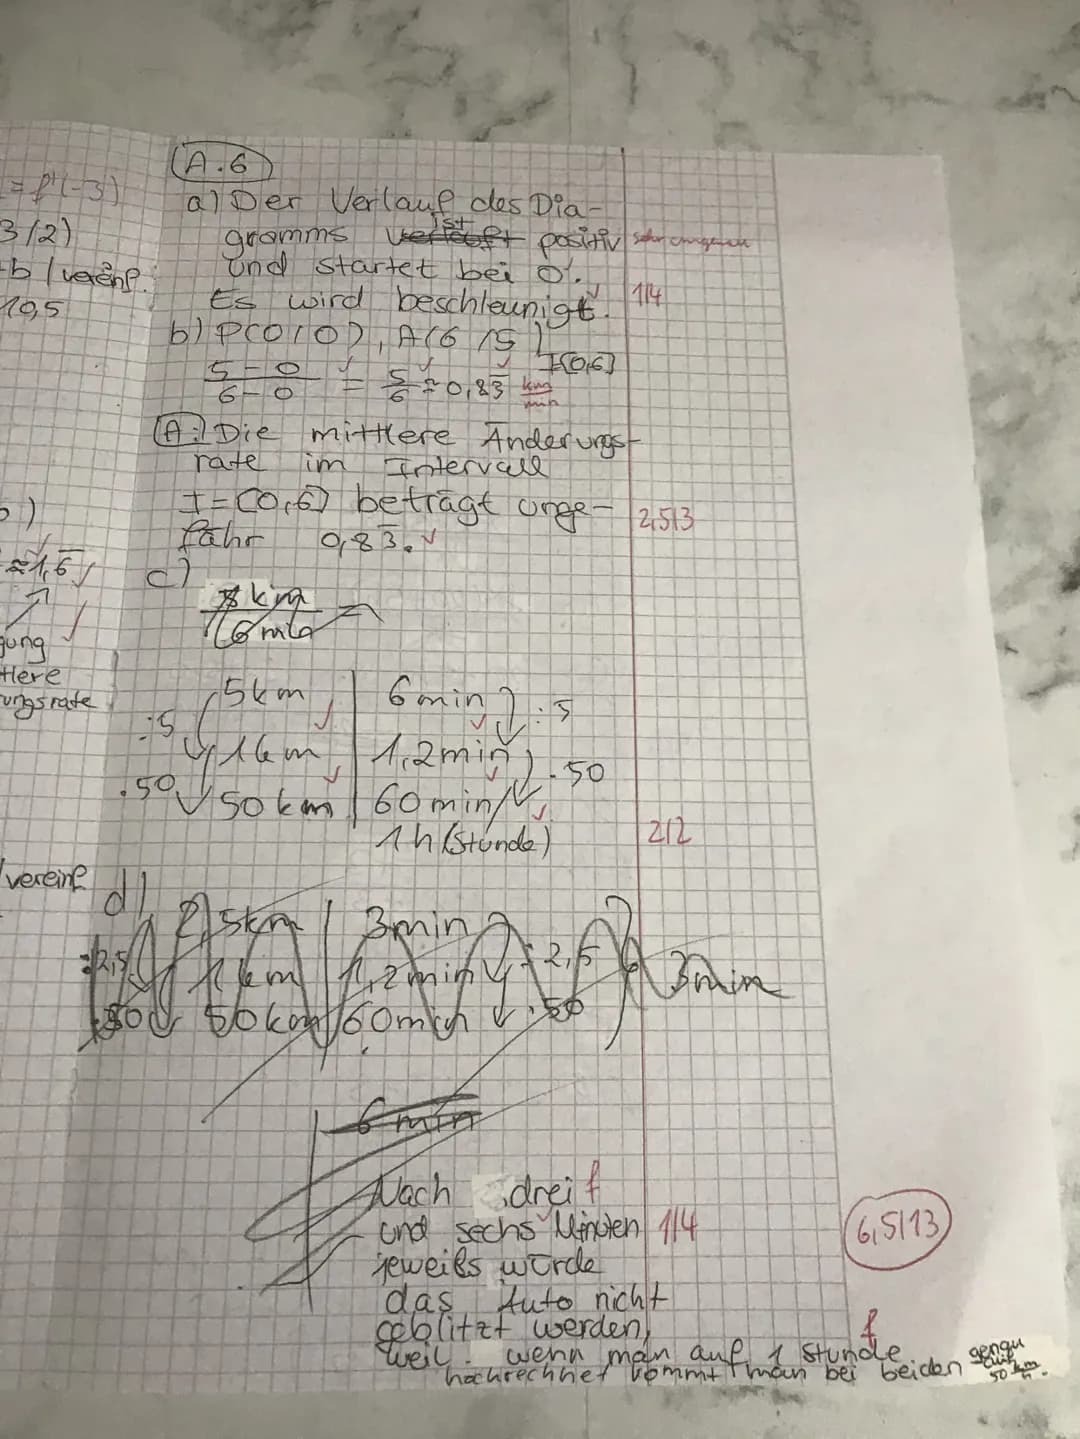 = f'(-3)
3/2)
b / vereinf.
10,5
≈1,6̅
gung
ttlere
rungsrate
/vereinf
A.6
a) Der Verlauf des Dia-
gramms verläuft ist positiv
und startet bei 0.
Es wird beschleunigt.
1/4
b) P(0/0), A(6/5)
I[0,6]
5-0 / 6-0 = 5/6 ≈ 0,83̅ km/min
A: Die mittlere Änderungs-
rate im Intervall
I=[0,6] beträgt unge-
fähr 0,83̅.
2,5/3
c)
5km | 6min
:5 :5
1km | 1,2min
·50 ·50
50km | 60min/
1h (Stunde)
2/2
d)
2,5km | 3min
:2,5 1km | 1,2min :2,5 3min
·50 50km | 60min ·50
6min
Nach drei f
und sechs Minuten 1/4
jeweils würde
das Auto nicht
geblitzt werden,
weil wenn man auf 1 Stunde f
hochrechnet kommt man bei beiden genau auf 50 km/h.
6,5/13